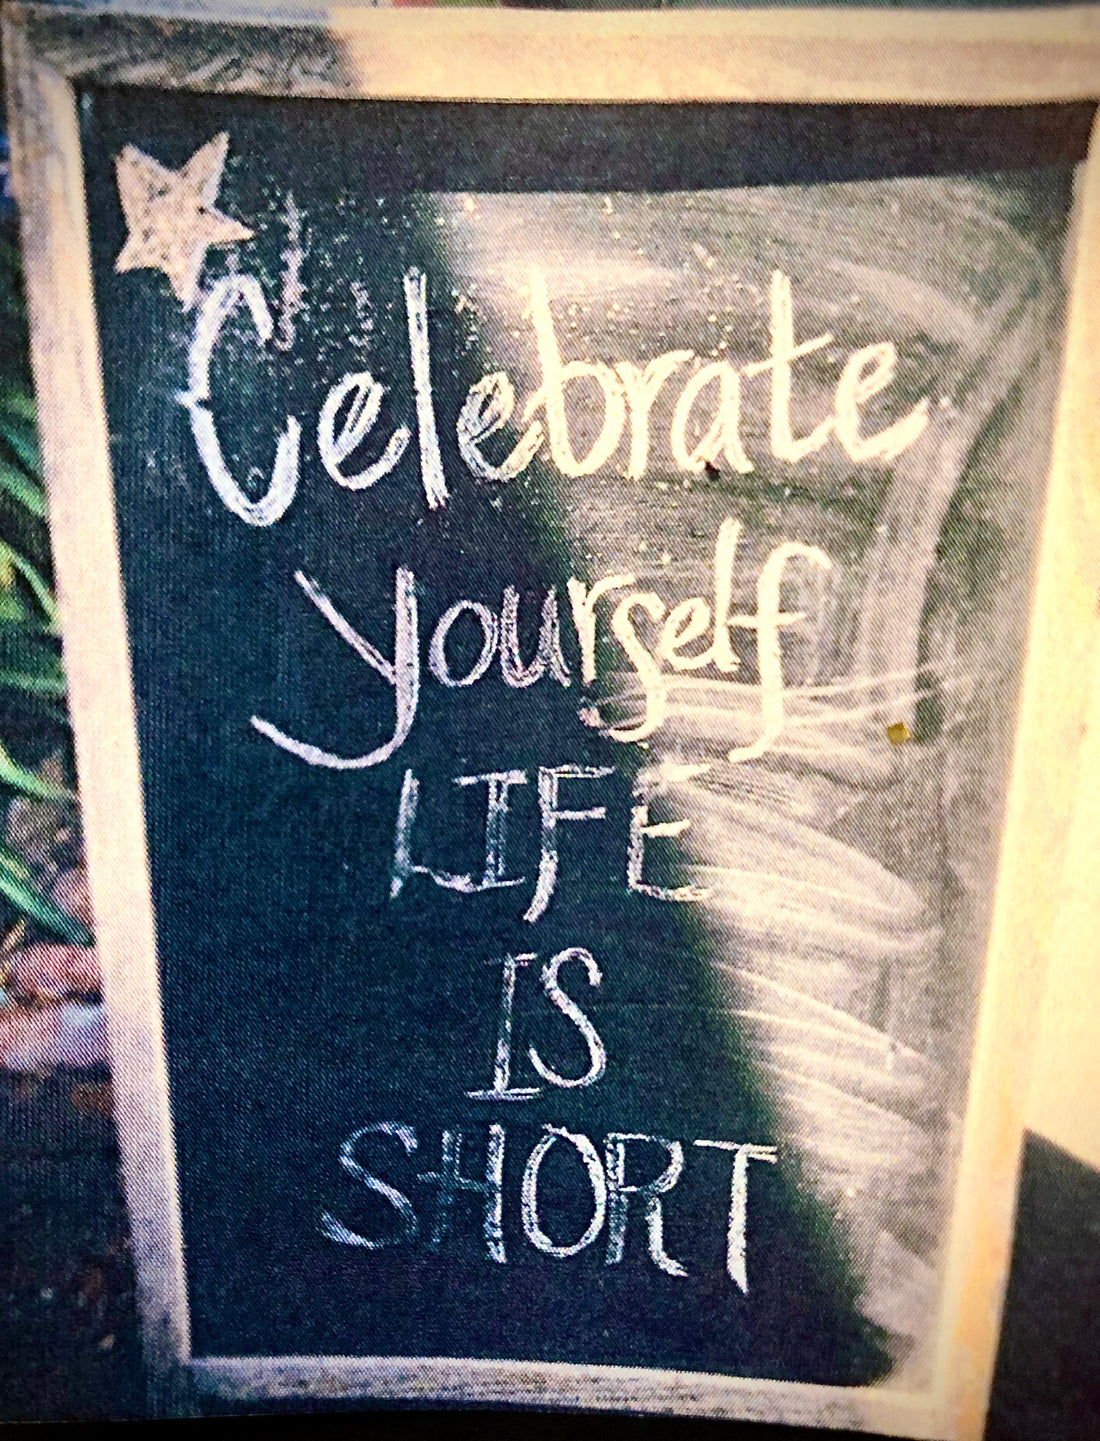 Celebrate
yourself
LIFE
IS
SHORT